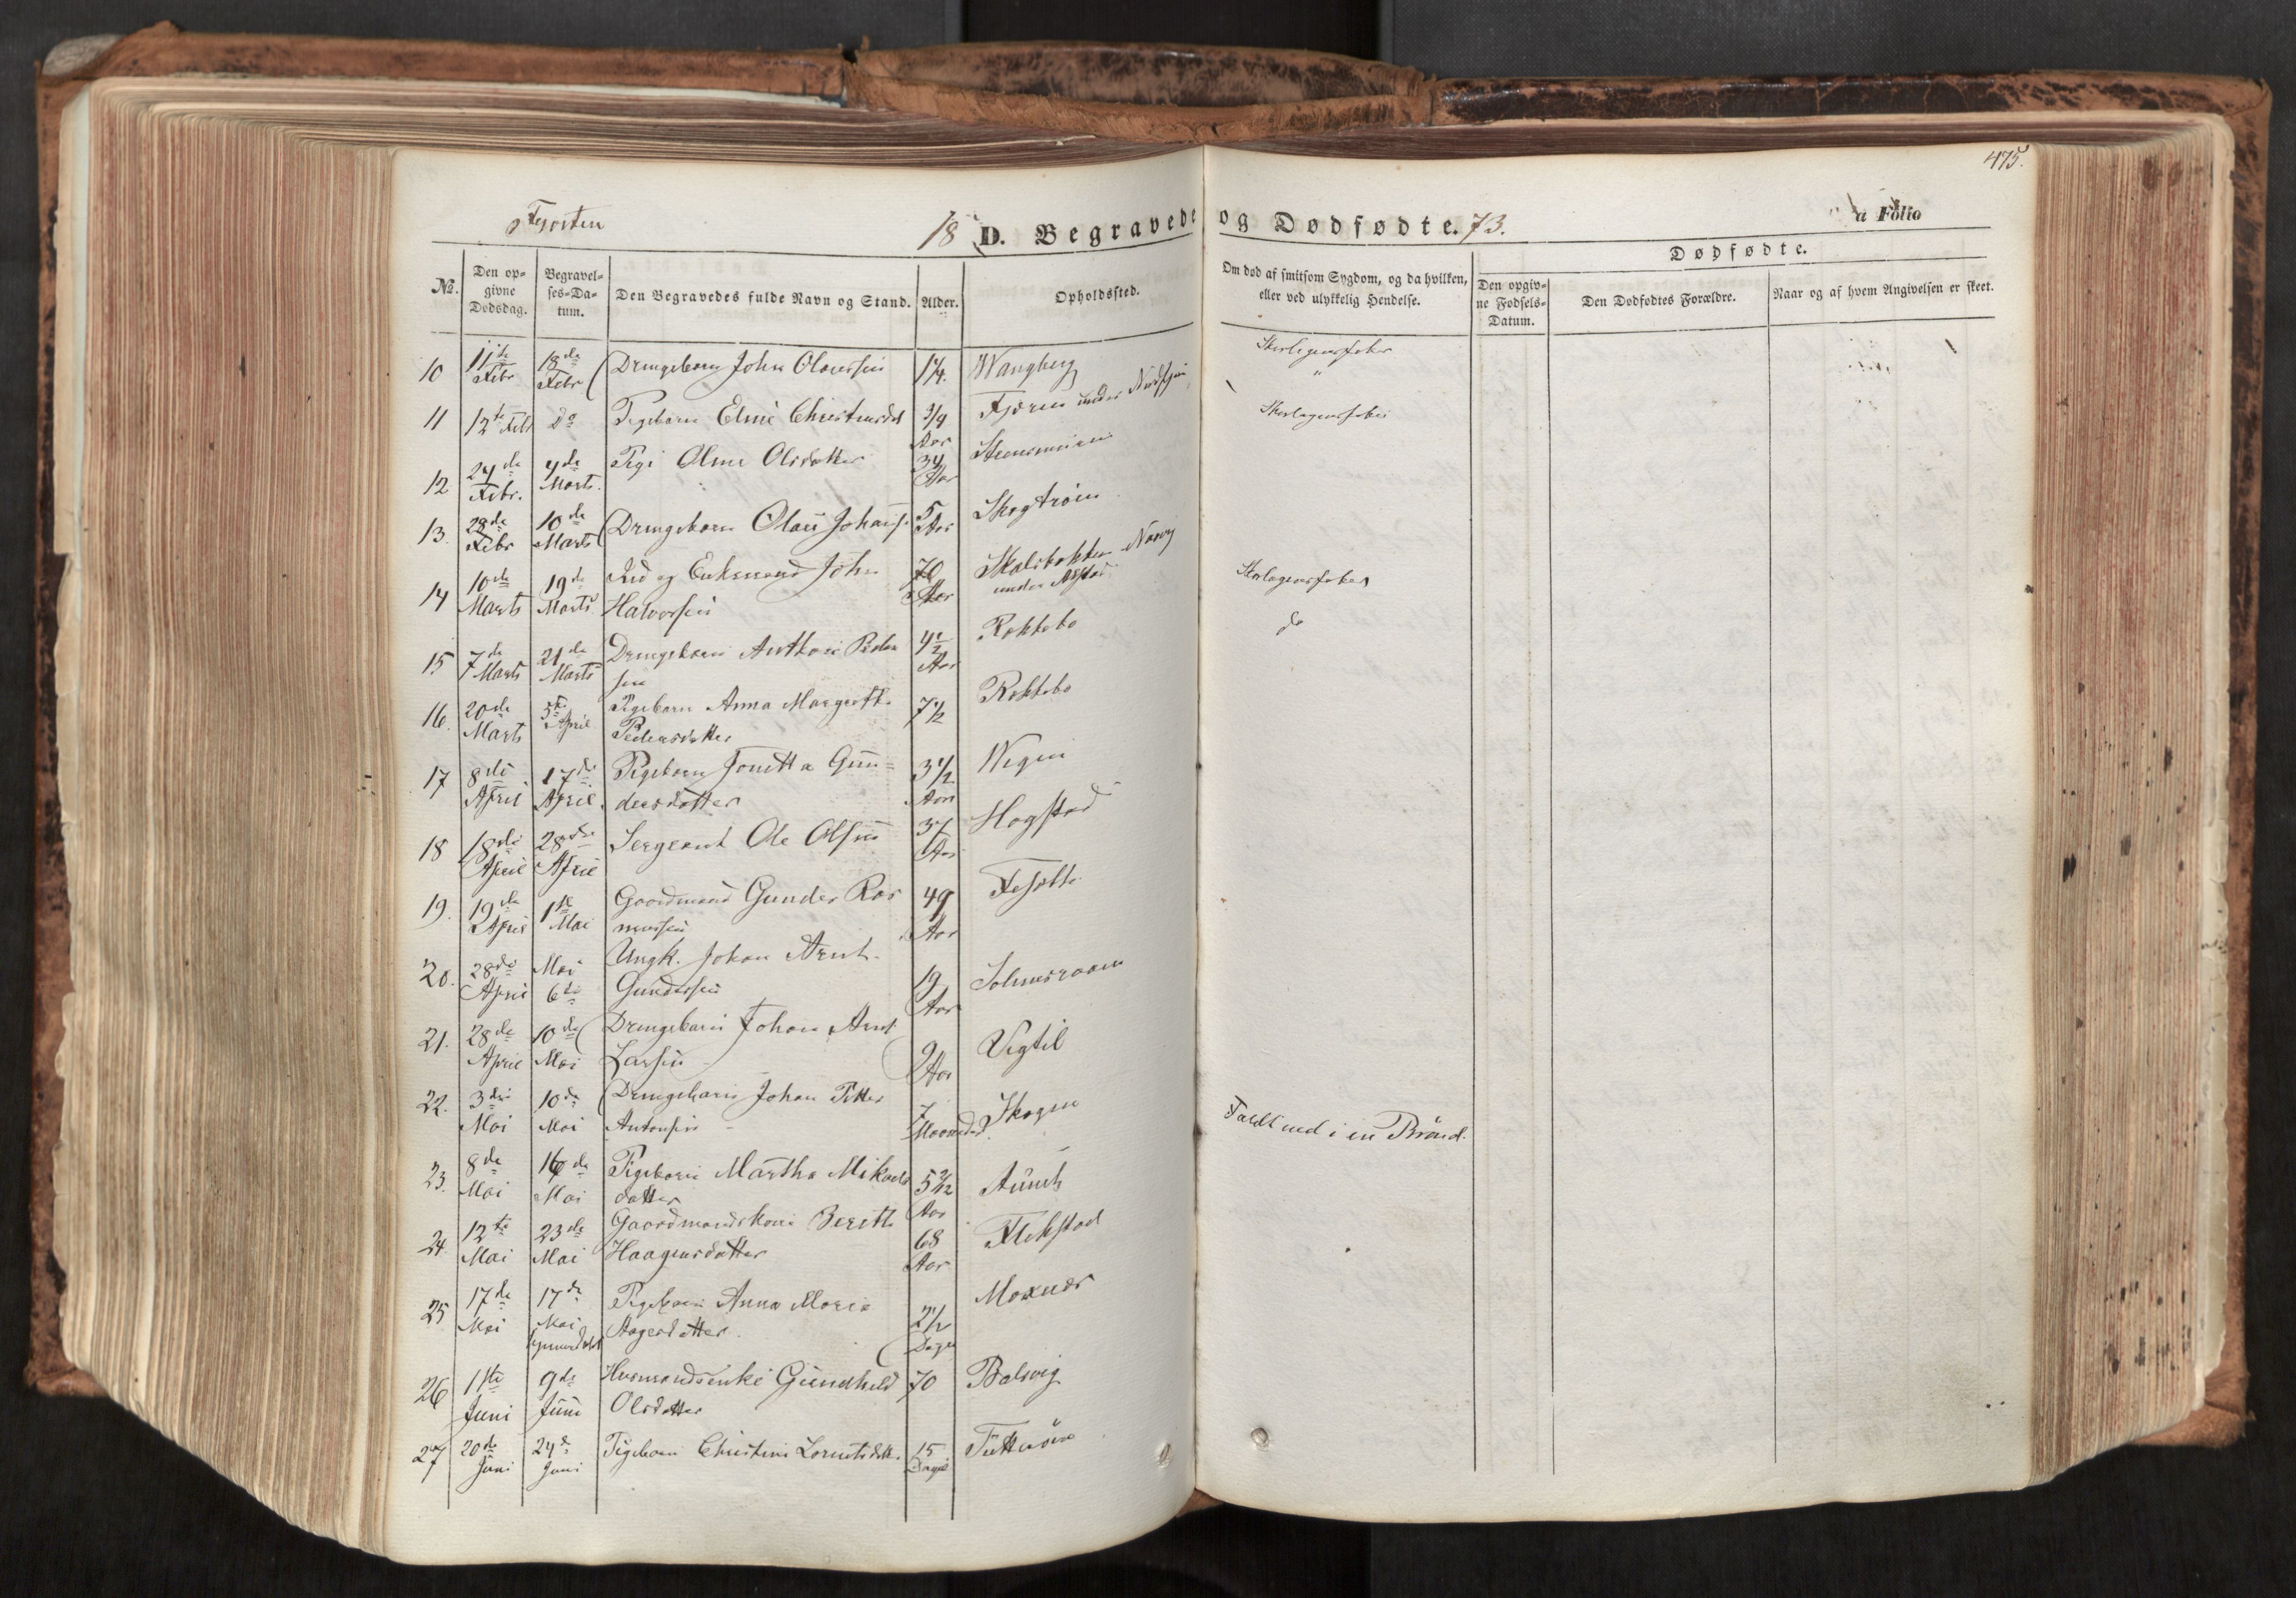 475.
Frosten
18 D. Begravede og Dødfødte. 73.
a Folio
Dødfødte.
No.
Den opgivne Dødsdag.
Begravelses-Datum.
Den Begravedes fulde Navn og Stand.
Alder.
Opholdssted.
Om død af smitsom Sygdom, og da hvilken, eller ved ulykkelig Hendelse.
Den opgivne Fødsels-Datum.
Den Dødfødtes Forældre.
Naar og af hvem Angivelsen er skeet.
10 11te Febr 18de Febr Drengebarn John Olaussen 1 1/4. Wangberg Skarlagensfeber
11 12te Febr do Pigebarn Christensdat 3/4 Aar Fjæren under Skarlagensfeber
12 24de Febr. 4de Marts. Pige Oline Olsdatter 34 Aar
13. 28de Febr 10de Marts Drengebarn Olaus Johans. 5 Aar
14 10de Marts 19de Marts Enkemand John 70 Aar under Skarlagensfeber
Halvorsen
15 7de Marts 21de Marts Drengebarn Anthon Peder 4 1/2 Aar Roktebo do
sen
16. 20de Marts 5te April Pigebarn Anna Margreth 7 1/2 Roktebo
Pedersdatter
17 8de April 17de April. Pigebarn Jonetta Gun= 3 1/2 Aar
dersdatter
18 18de April 28de April Sergeant Ole Olsen 37 Aar Hogstad
19. 19de April 1ste Mai Gaardmand Gunder Ras 49 Aar
mussen
20. 28de April Mai 6te Ungk. Johan Arnt 19 Aar
Gundersen
21. 28de April 10de Mai Drengebarn Johan Arnt 9 Aar Vigtil
Larsen
22. 3die Mai 10de Mai Drengebarn Johan Petter 7 Maaneder. Skogen
Antonsen
23. 8de Mai 16de Mai Pigebarn Martha Mikaels 5 2/12 Aar Faldt ned i en Brønd.
datter
24. 12te Mai 23de Mai Gaardmandskone Beritte 68 Aar
Haagensdatter
25 17de Mai 17de Mai Pigebarn Anna Maria 2 1/2 Dage Moxnæs
Aagesdatter
26 1ste Juni 9de Juni Husmandsenke Gundhild 70 Balsvig
Olsdatter
27 20de Juni 24de Juni Pigebarn Christine Lorentsdatt. 15 Dage